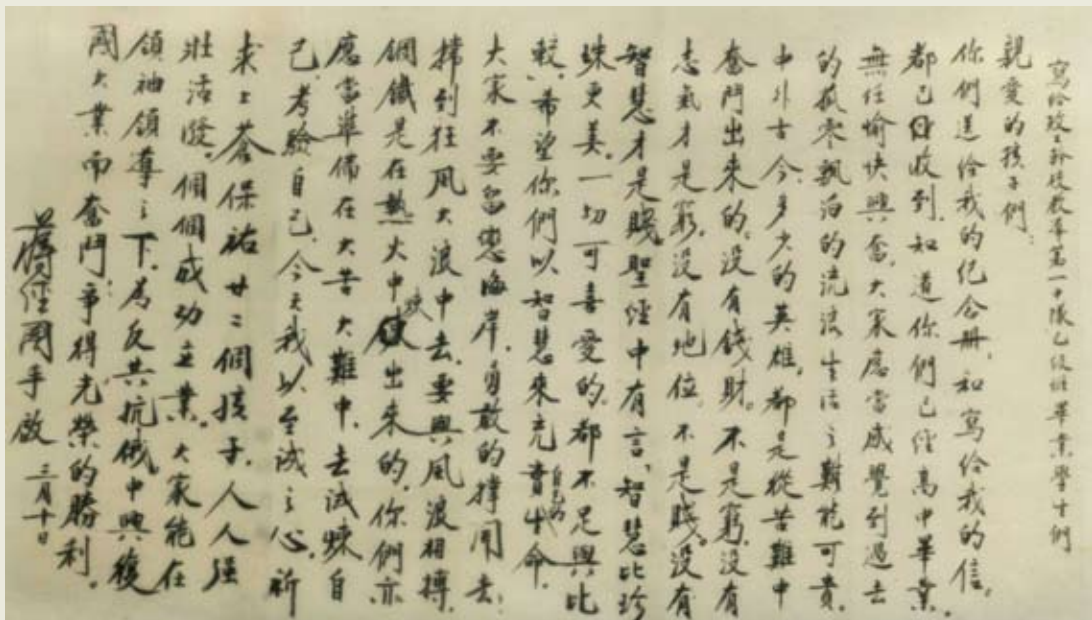 寫給政工幹校教導第一中隊乙級班畢業學士們
親愛的孩子們：
你們送給我的紀念冊，和寫給我的信，
都已收到，知道你們已經高中畢業，
無任愉快興奮，大家應當感覺到過去
的孤零飄泊的流浪生活之難能可貴，
中外古今，多少的英雄，都是從苦難中
奮鬥出來的，沒有錢財，不是窮，沒有
志氣才是窮，沒有地位，不是賤，沒有
智慧才是賤，聖經中有言，智慧比珍
珠更美，一切可喜愛的，都不足與比
較，希望你們以智慧來充實自己的生命，
大家不要留戀海岸，勇敢的撐開去，
撐到狂風大浪中去，要與風浪相搏，
鋼鐵是在熱火中煉出來的，你們亦
應當準備在大苦大難中，去試煉自
己，考驗自己，今天我以至誠之心，祈
求上蒼保祐廿二個孩子，人人強
壯活潑，個個成功立業，大家能在
領袖領導之下，為反共抗俄，中興復
國大業而奮鬥，爭得光榮的勝利。
蔣經國手啟 三月十日